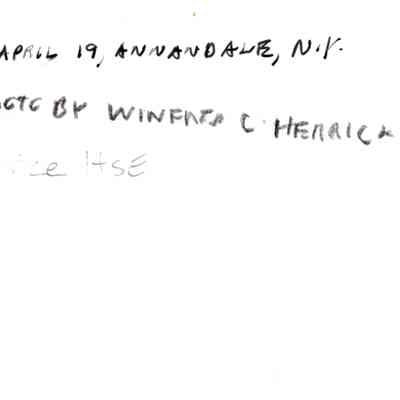 APRIL 19, ANNANDALE, N.Y.
BY WINFRED C. HERRICK
HSE